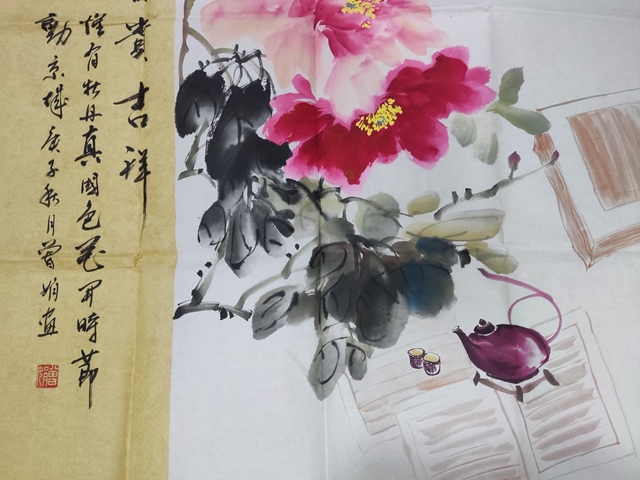 貴吉祥
惟有牡丹真國色花開時節
動京城庚子秋月曾娟画